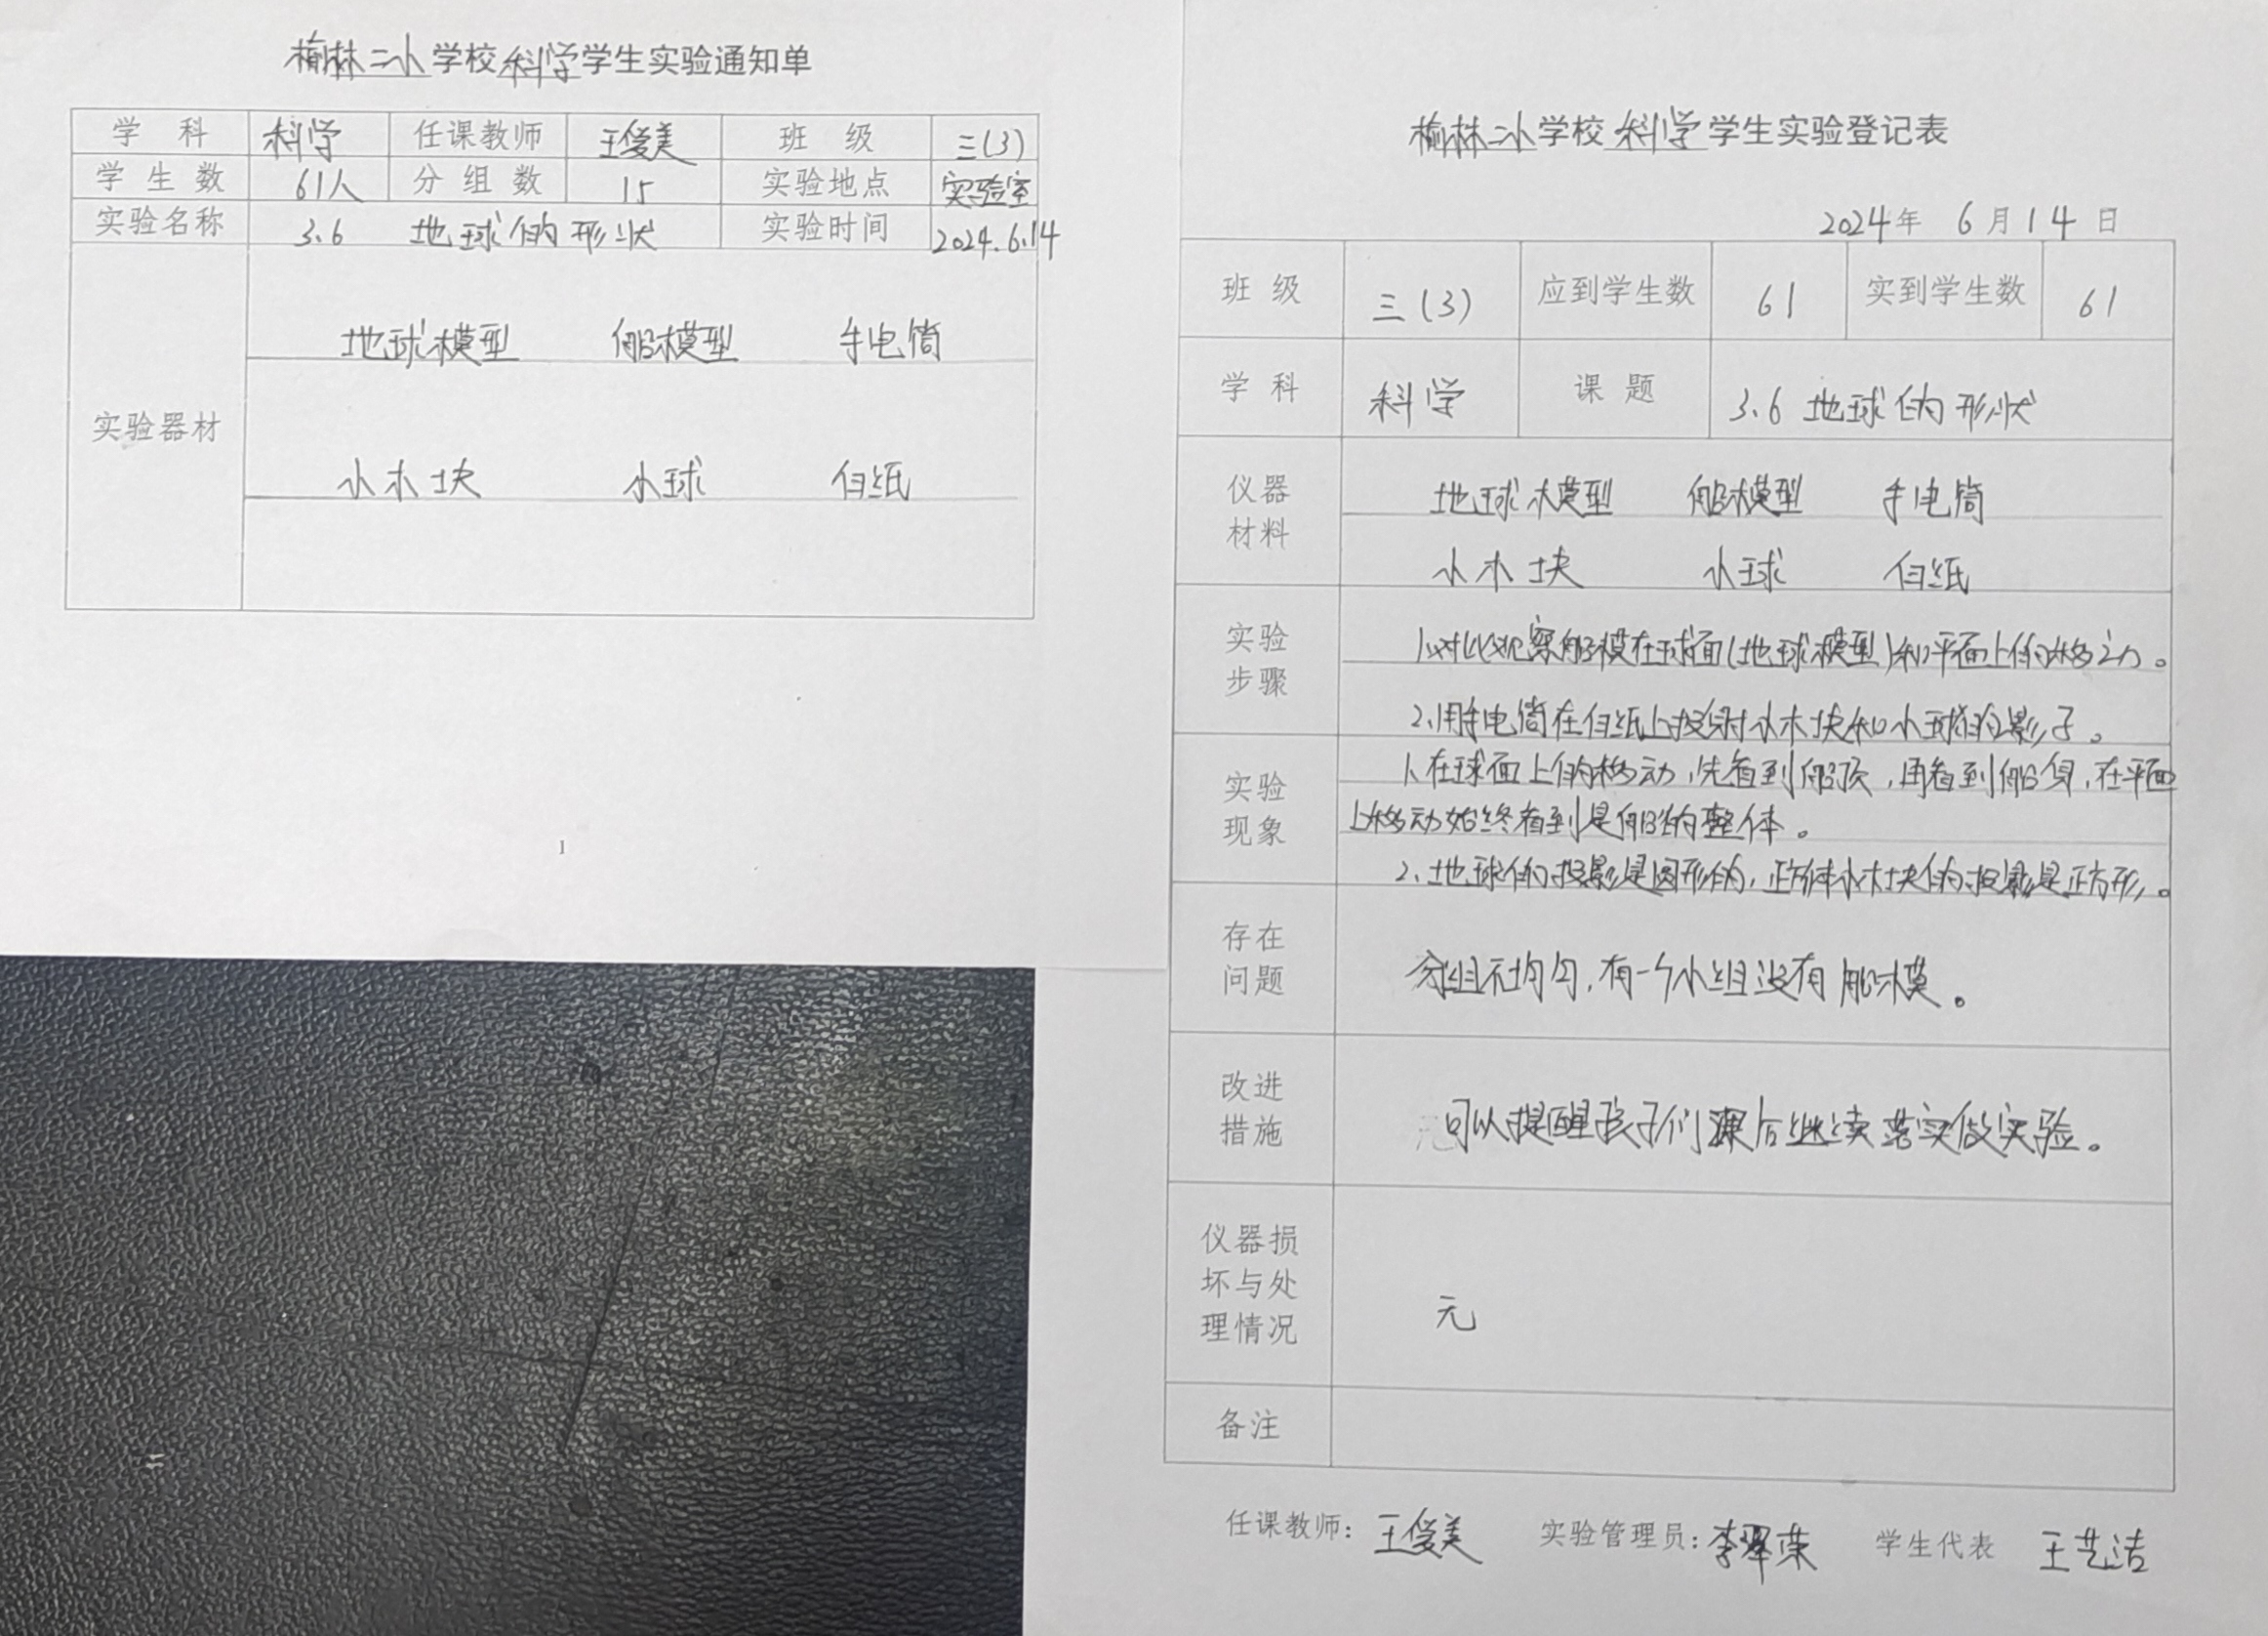 榆林二小学校科学学生实验通知单
学 科 科学 任课教师 王俊美 班 级 三(3)
学生数 61人 分组数 15 实验地点 实验室
实验名称 3.6 地球的形状 实验时间 2024.6.14
实验器材
地球模型 船模型 手电筒
小木块 小球 白纸
1
榆林二小学校科学学生实验登记表
2024年 6月14日
班 级 三(3) 应到学生数 61 实到学生数 61
学 科 科学 课 题 3.6 地球的形状
仪器
材料
地球模型 船模型 手电筒
小木块 小球 白纸
实验
步骤
1.对比观察船模在球面(地球模型)和平面上的移动。
2.用手电筒在白纸上投射小木块和小球的影子。
实验
现象
1.在球面上的移动,先看到船顶,再看到船身,在平面
上移动始终看到是船的整体。
2.地球的投影是圆形的,正方体小木块的投影是正方形。
存在
问题
分组不均匀,有一个小组没有船模。
改进
措施
可以提醒孩子们课后继续落实做实验。
仪器损
坏与处
理情况
无
备注
任课教师:王俊美 实验管理员:李翠荣 学生代表 王艺洁